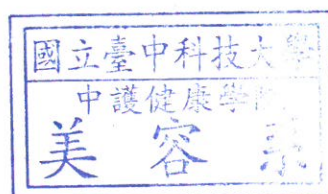 國立臺中科技大學
中護健康學院
美容系